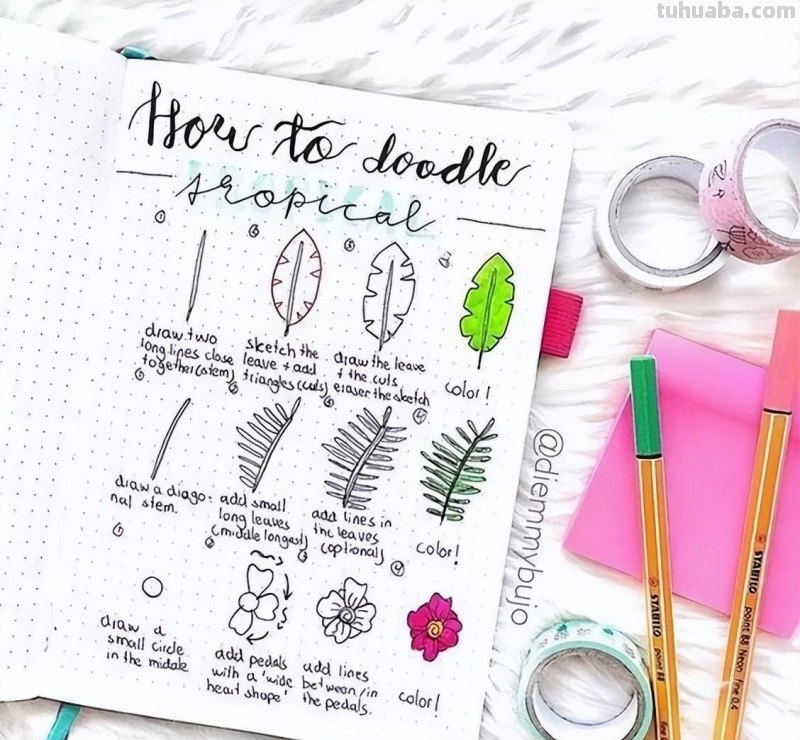 tuhuaba.com
How to doodle
tropical
TROPICAL
1
2
3
4
draw two
long lines close
together (stem)
sketch the
leave + add
triangles (cuts)
draw the leave
+ the cuts
eraser the sketch
color!
1
2
3
4
draw a diago-
nal stem.
add small
long leaves
(middle longest)
add lines in
the leaves
(optional)
color!
1
2
3
4
draw a
small circle
in the middle
add pedals
with a 'wide
heart shape'
add lines
between/in
the pedals.
color!
@diemmybujo
STABILO
point 88
fine
STABILO
point 88 Neon
fine 0.4